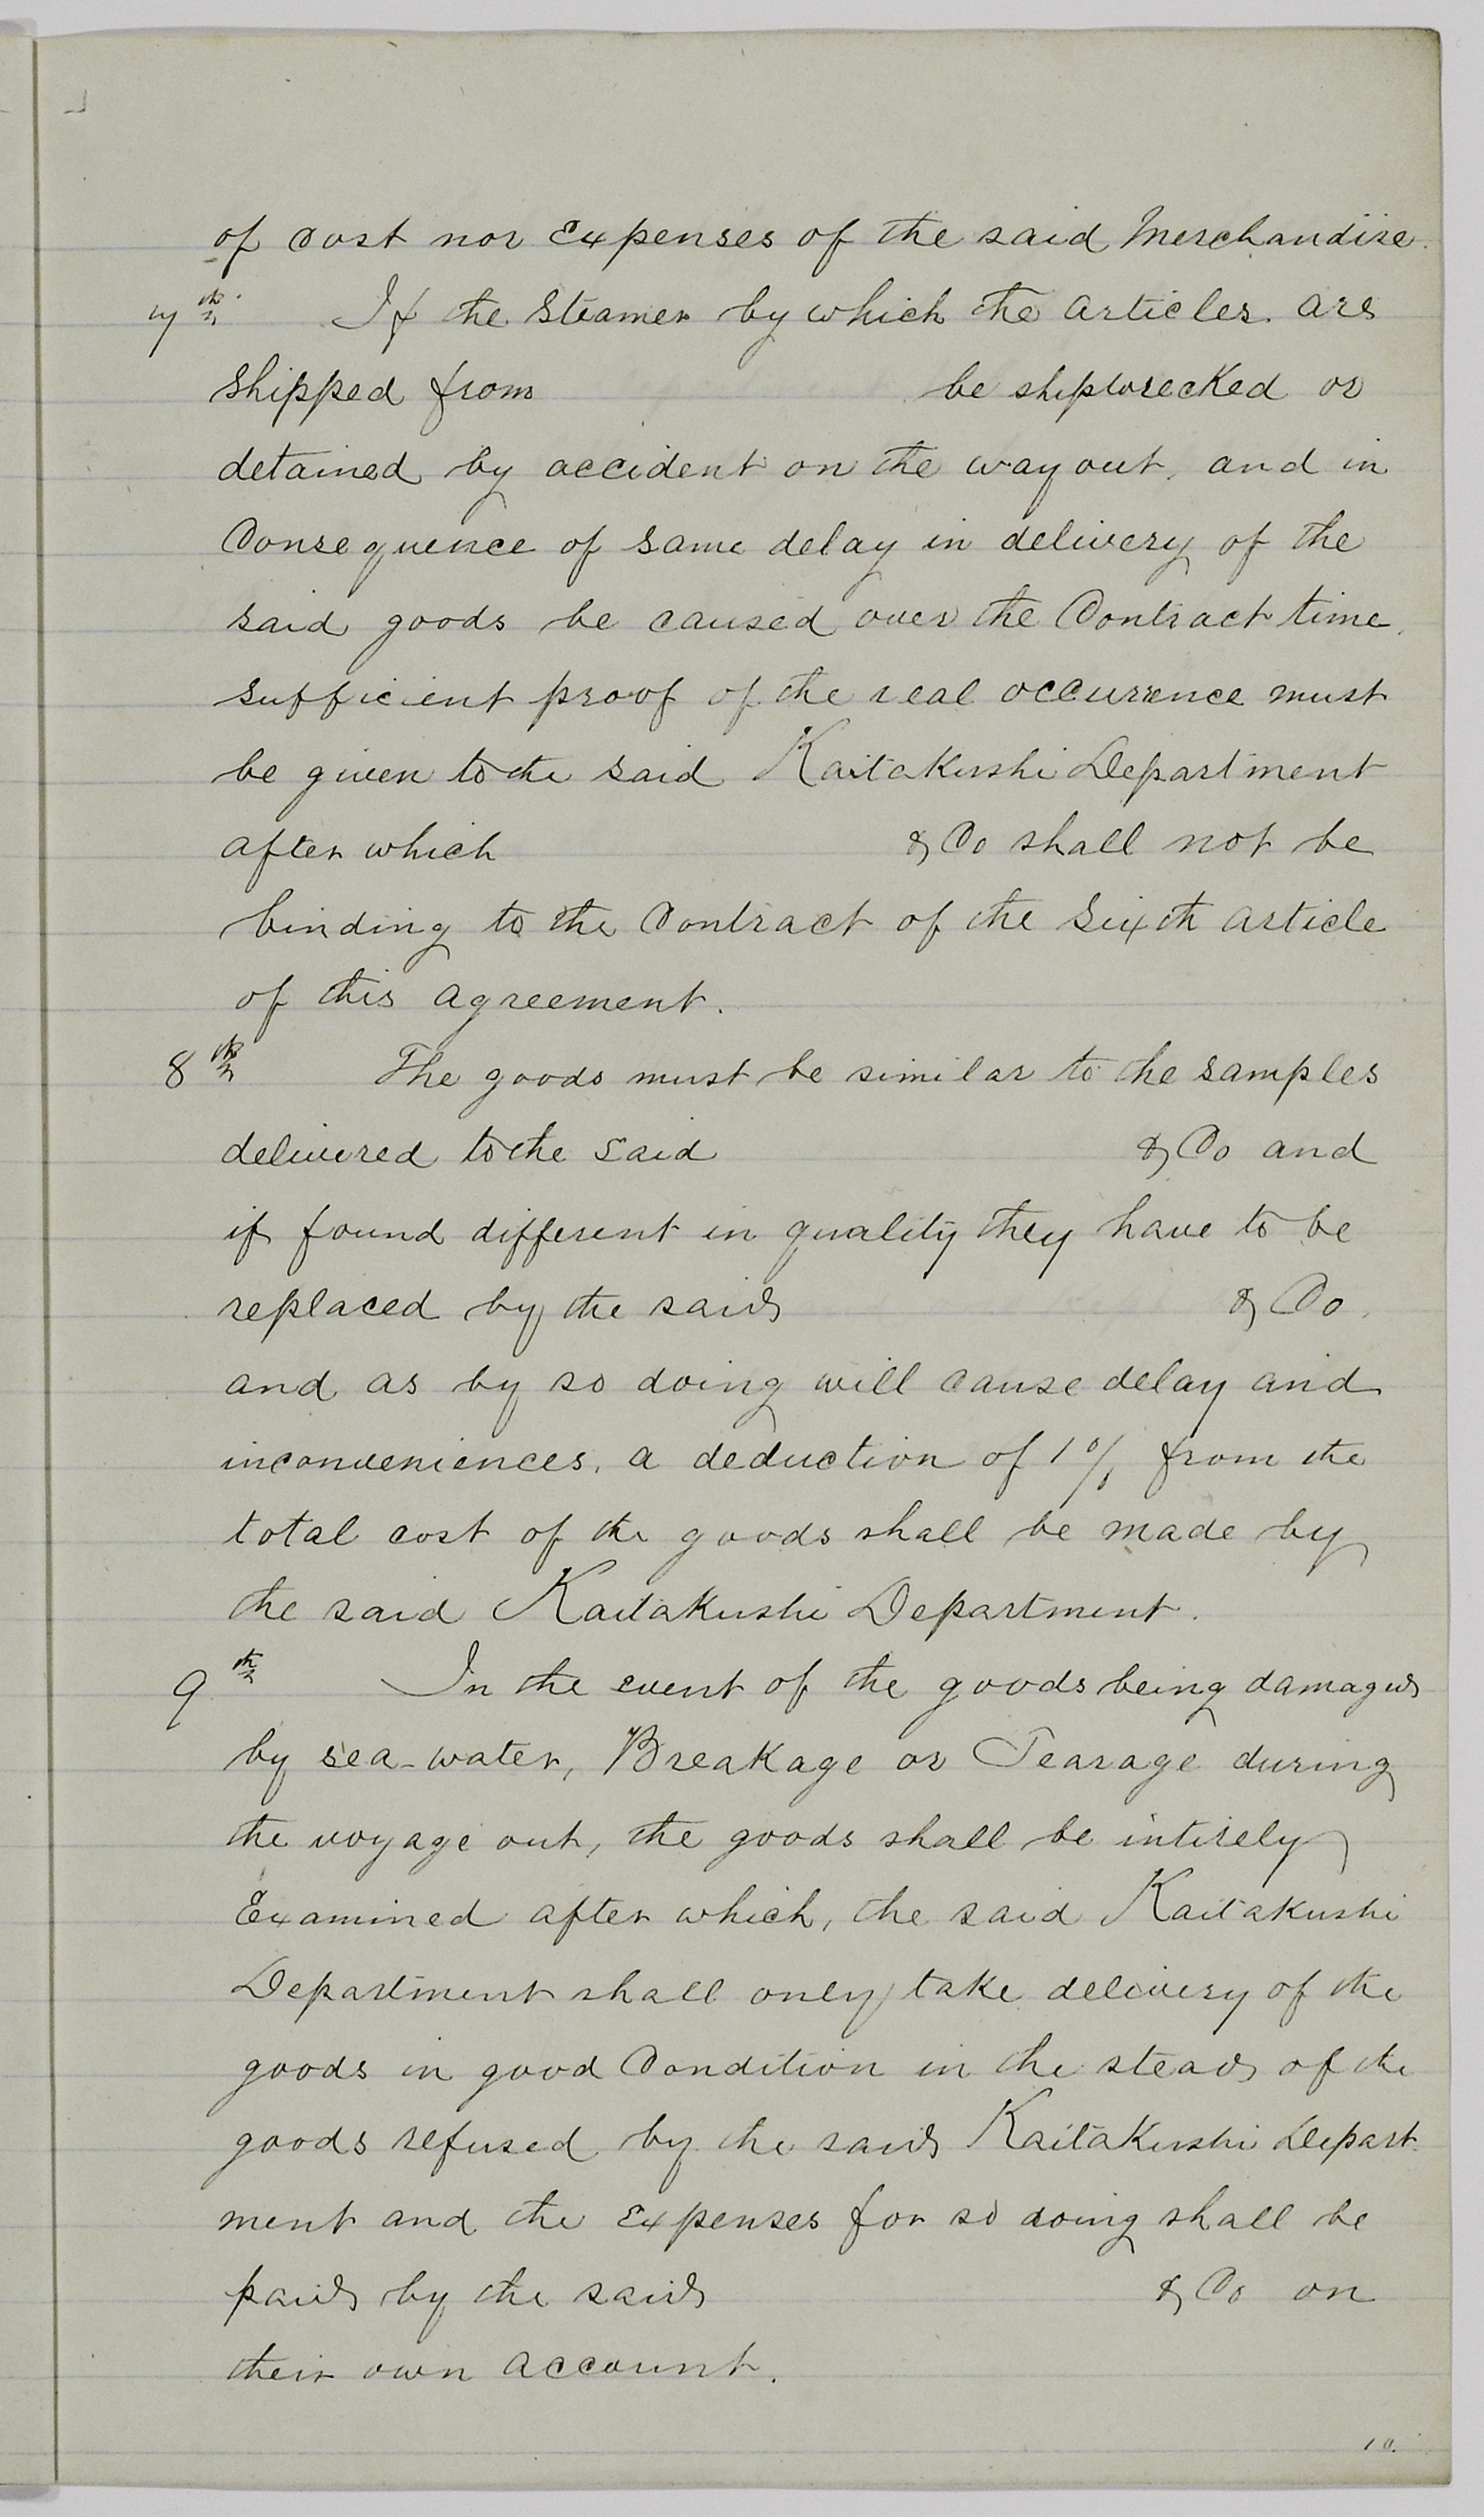 of cost nor Expenses of the said Merchandise.
7th If the Steamer by which the articles are
shipped from be shipwrecked or
detained by accident on the way out, and in
Consequence of same delay in delivery of the
said goods be caused over the Contract time,
sufficient proof of the real occurrence must
be given to the said Kaitakushi Department
after which & Co shall not be
binding to the Contract of the Sixth article
of this agreement.
8th The goods must be similar to the samples
delivered to the said & Co and
if found different in quality they have to be
replaced by the said & Co.
and as by so doing will cause delay and
inconveniences, a deduction of 1% from the
total cost of the goods shall be made by
the said Kaitakushi Department.
9th In the event of the goods being damaged
by sea-water, Breakage or Tearage during
the voyage out, the goods shall be intirely
Examined after which, the said Kaitakushi
Department shall only take delivery of the
goods in good Condition in the stead of the
goods refused by the said Kaitakushi Depart-
ment and the Expenses for so doing shall be
paid by the said & Co on
their own account.
10.